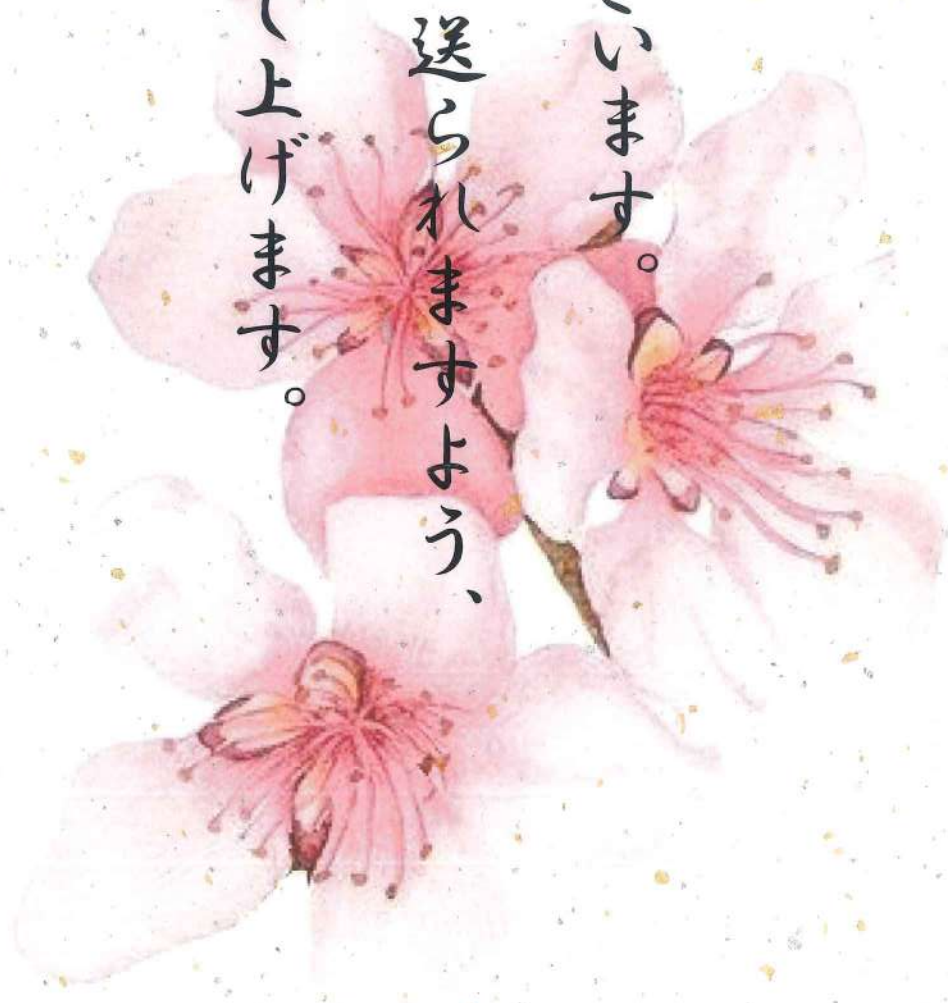 います。
送られますよう、
て上げます。